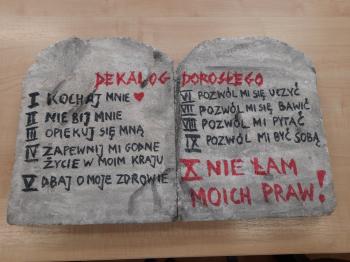 DEKALOG DOROSŁEGO
I KOCHAJ MNIE ♥
II NIE BIJ MNIE
III OPIEKUJ SIĘ MNĄ
IV ZAPEWNIJ MI GODNE
ŻYCIE W MOIM KRAJU
V DBAJ O MOJE ZDROWIE
VI POZWÓL MI SIĘ UCZYĆ
VII POZWÓL MI SIĘ BAWIĆ
VIII POZWÓL MI PYTAĆ
IX POZWÓL MI BYĆ SOBĄ
X NIE ŁAM
MOICH PRAW!